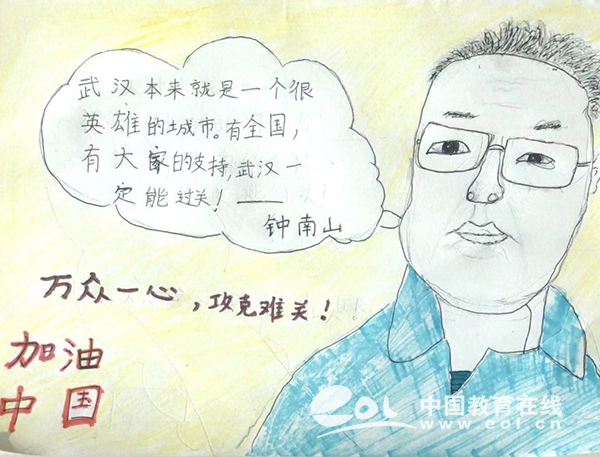 武汉本来就是一个很
英雄的城市。有全国,
有大家的支持,武汉一
定能过关!——
钟南山
万众一心,攻克难关!
加油
中国
eol 中国教育在线
www.eol.cn